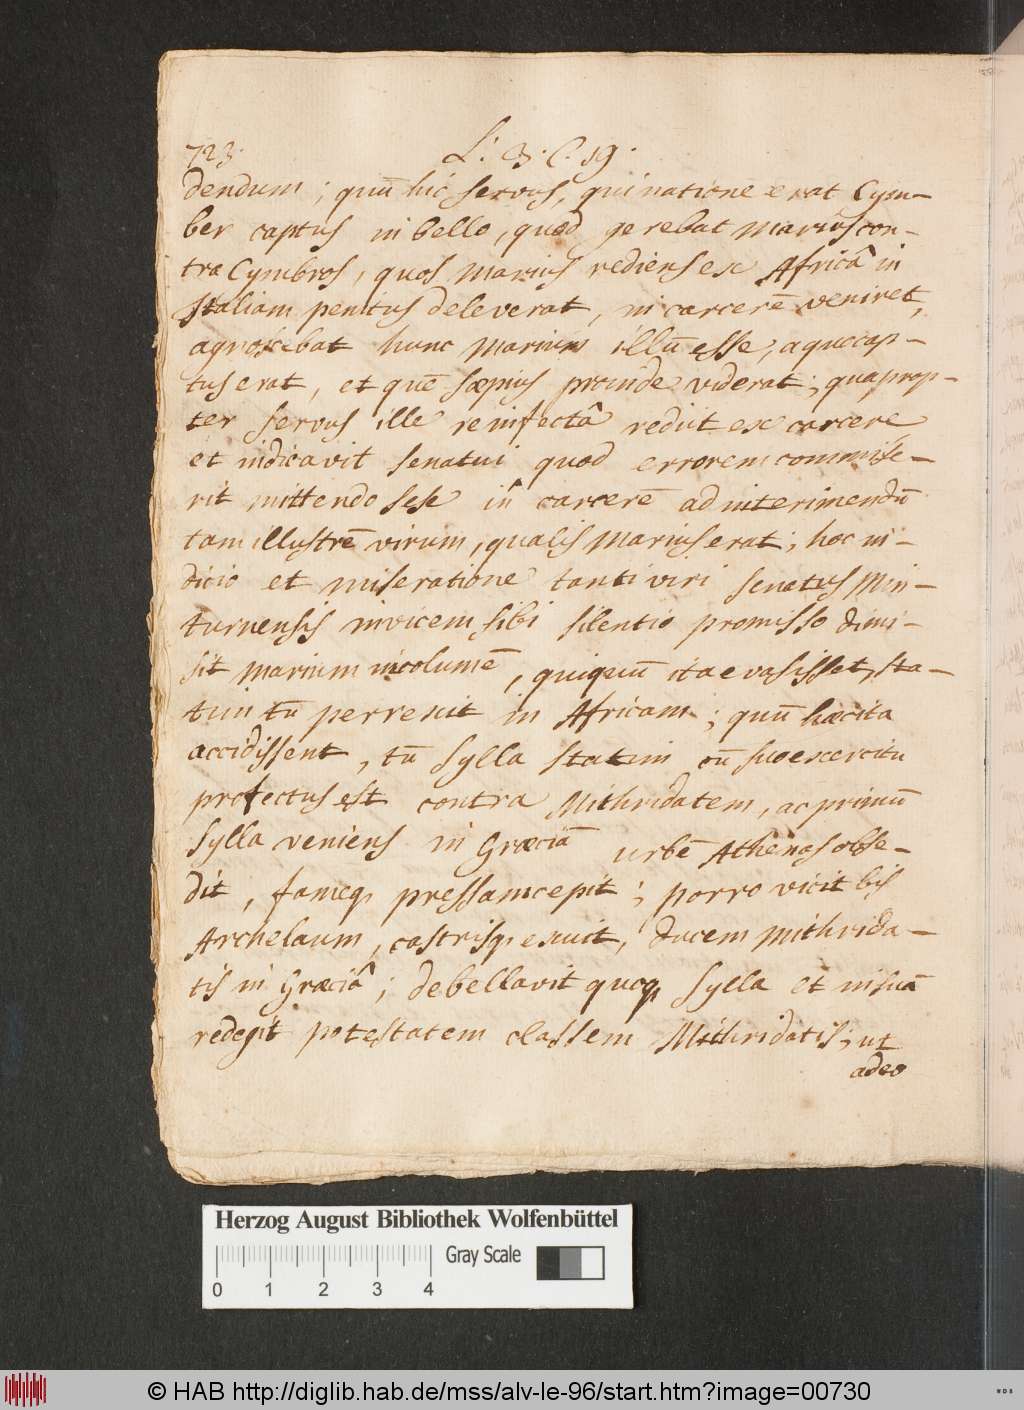 723. L. 3. C. 19.
dendum; quū hic servus, qui natione erat Cym-
ber captus in bello, quod gerebat Marius con-
tra Cymbros, quos Marius rediens ex Africâ in
Italiam penitus deleverat, in carcerē veniret,
agnoscebat hunc Marium illū esse, a quo cap-
tus erat, et quē sæpius proinde viderat; quaprop-
ter servus ille re infectâ rediit ex carcere
et indicavit senatui quod errorem commise-
rit mittendo sese in carcerē ad interimendū
tam illustrē virum, qualis Marius erat; hoc in-
dicio et miseratione tanti viri senatus Min-
turnensis invicem sibi silentio promisso dimi-
sit Marium incolumē, qui quū ita evasisset, sta-
tim tū pervenit in Africam; quū hæc ita
accidissent, tū Sylla statim cū suo exercitu
profectus est contra Mithridatem, ac primū
Sylla veniens in Græciā urbē Athenas obse-
dit, fameq, pressam cepit; porro vicit bis
Archelaum, castrisq, exuit, ducem Mithrida-
tis in Græciâ; debellavit quoq, Sylla et in suā
redegit potestatem classem Mithridatis; ut
adeo
Herzog August Bibliothek Wolfenbüttel
Gray Scale
0 1 2 3 4
© HAB http://diglib.hab.de/mss/alv-le-96/start.htm?image=00730